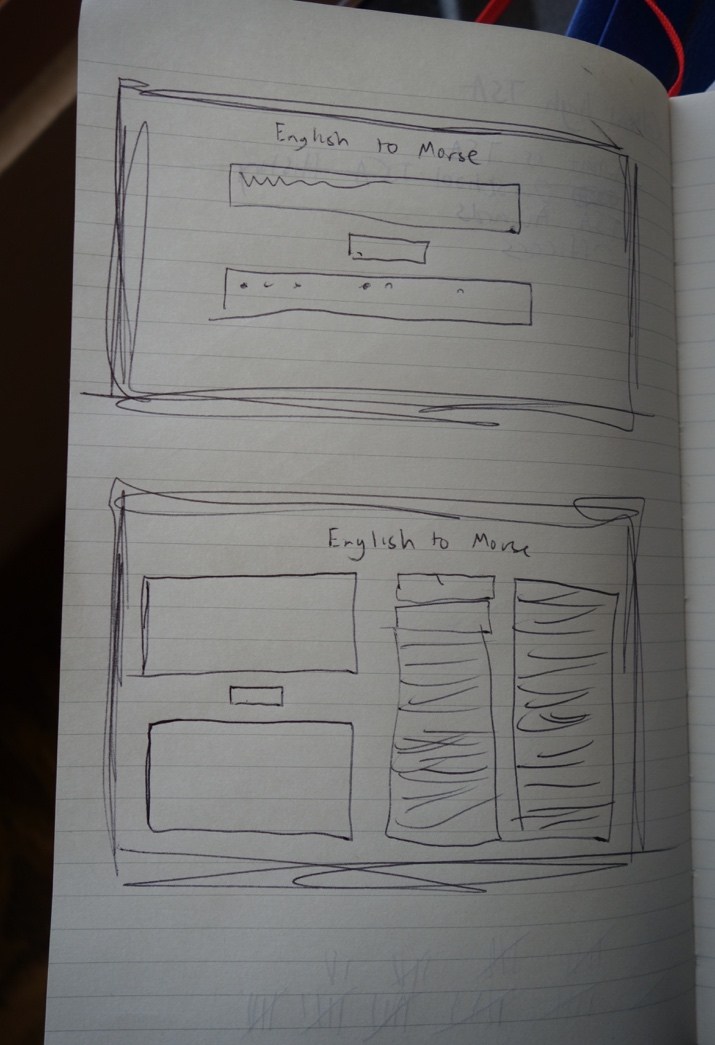 English to Morse
English to Morse